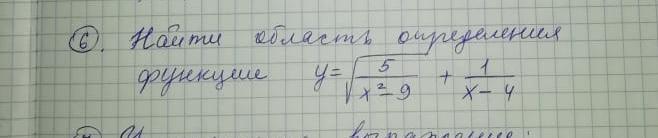 6. Найти область определения
функции y = √(5/(x² - 9)) + 1/(x - 4)